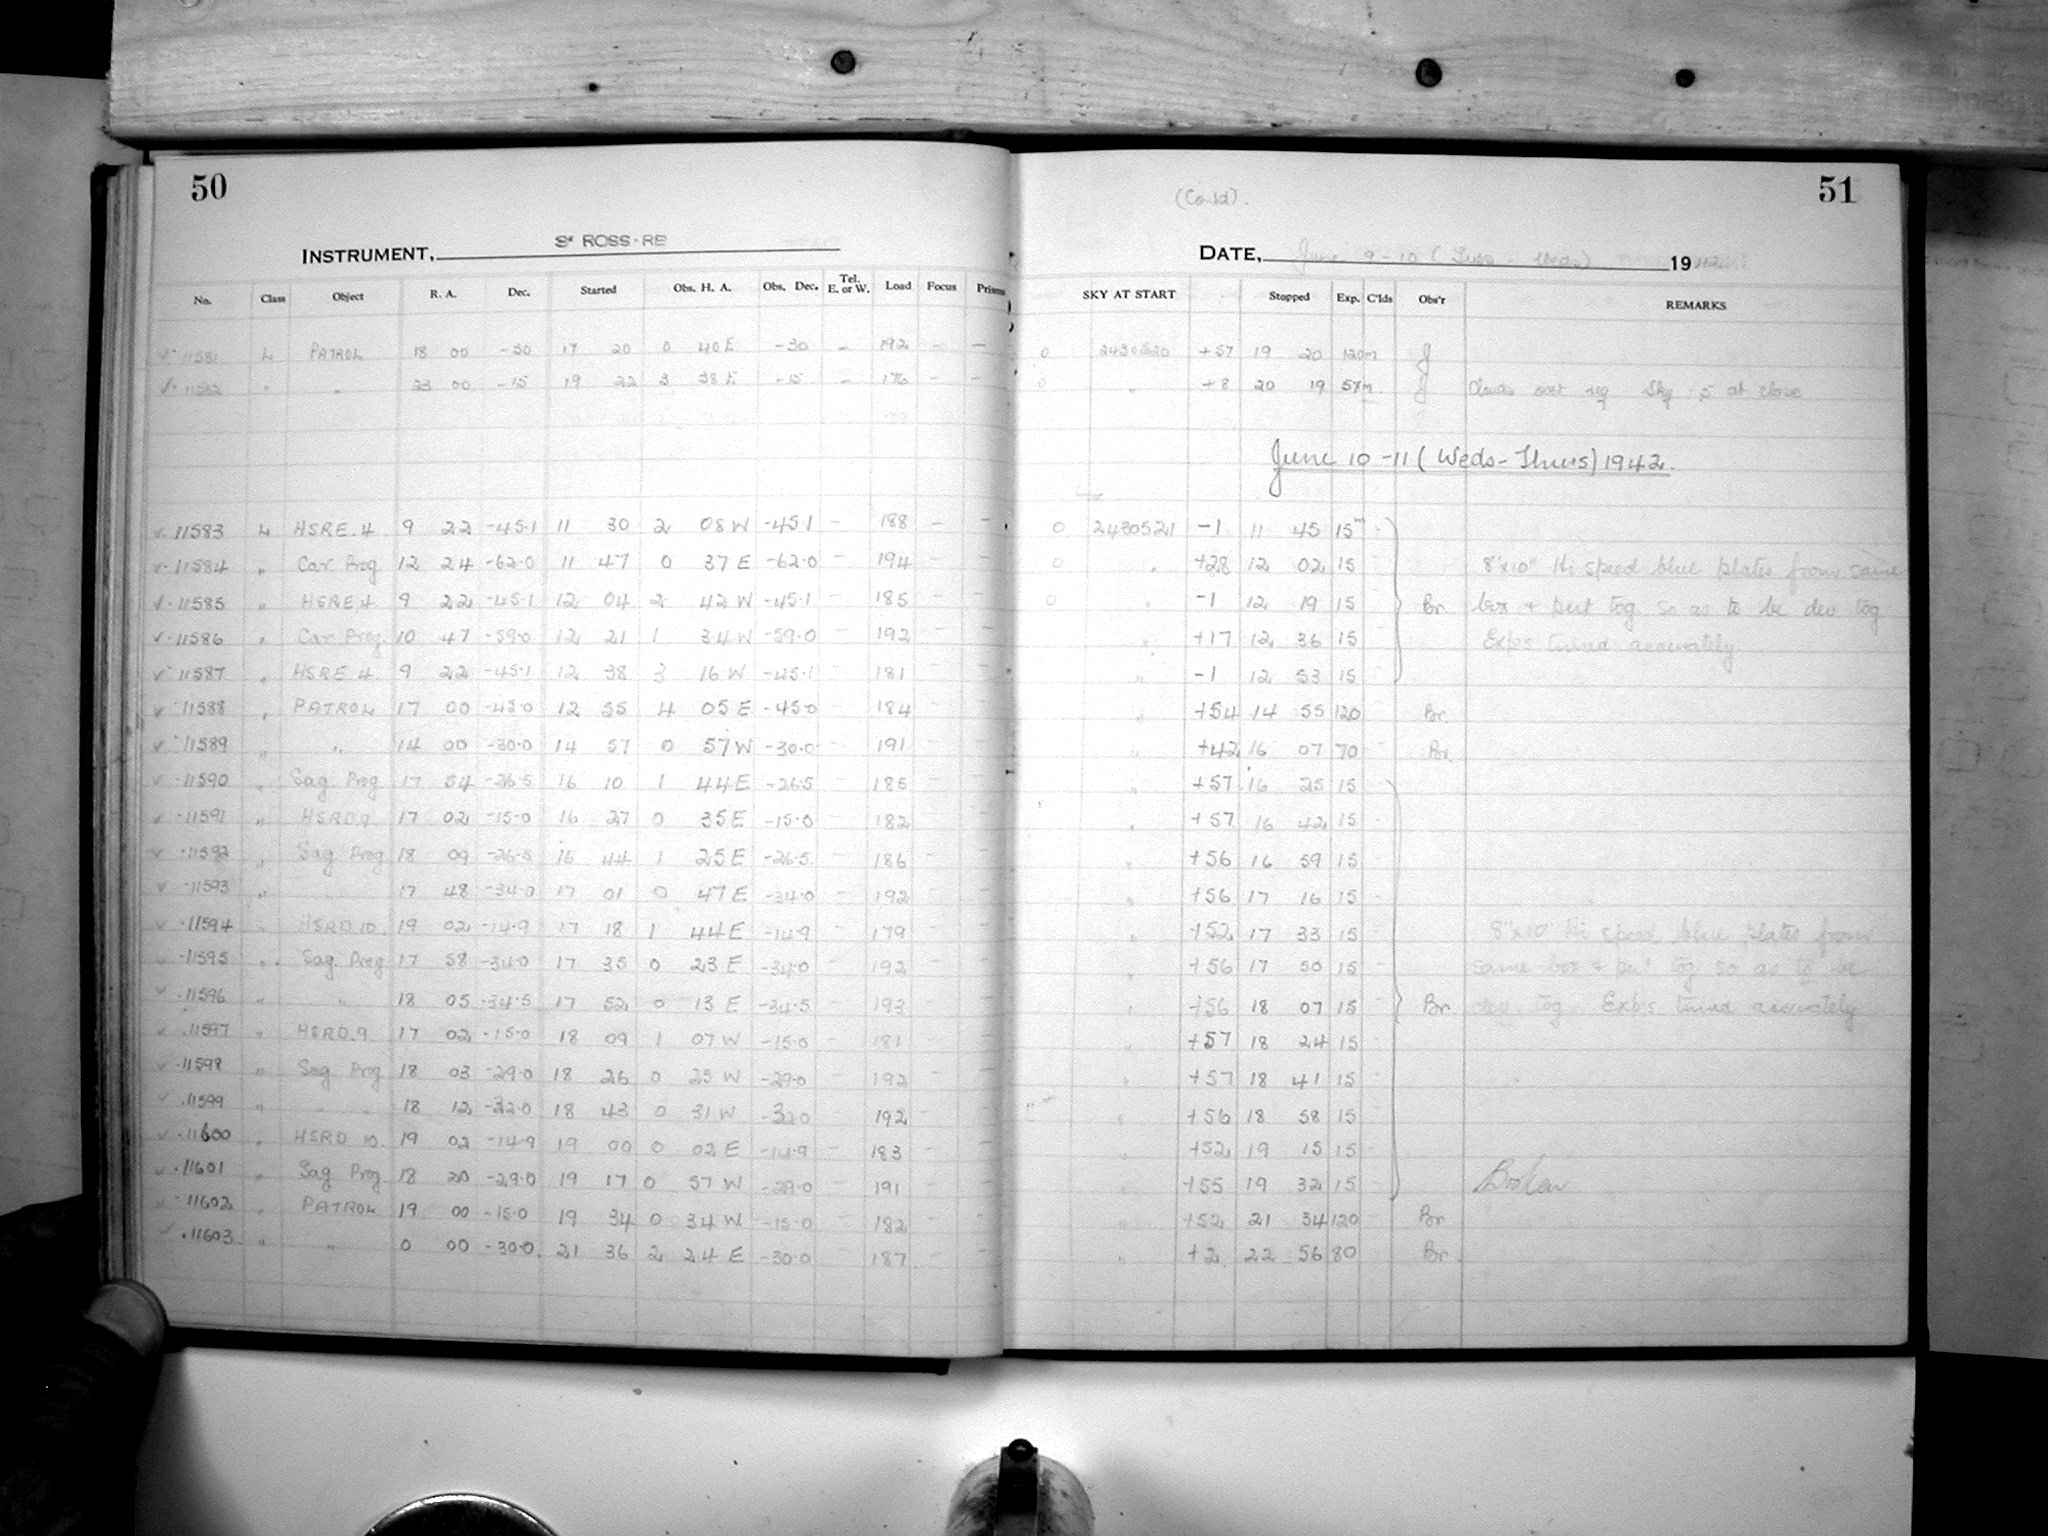 50
INSTRUMENT, 3" ROSS-RB
No. Class Object R. A. Dec. Started Obs. H. A. Obs. Dec. Tel. E. or W. Load Focus Prisms
11581 L PATROL 18 00 -30 17 20 0 40 E -30 - 192 - -
11582 " " 23 00 -15 19 22 3 38 E -15 - 176 - -
11583 L HSRE.4 9 22 -45.1 11 30 2 08 W -45.1 - 188 - -
11584 " Car Prog 12 24 -62.0 11 47 0 37 E -62.0 - 194 - -
11585 " HSRE 4 9 22 -45.1 12 04 2 42 W -45.1 - 185 - -
11586 " Car Prog. 10 47 -59.0 12 21 1 34 W -59.0 - 192 - -
11587 " HSRE 4 9 22 -45.1 12 38 3 16 W -45.1 - 181 - -
11588 " PATROL 17 00 -45.0 12 55 4 05 E -45.0 - 184 - -
11589 " " 14 00 -30.0 14 57 0 57 W -30.0 - 191 - -
11590 " Sag Prog 17 54 -26.5 16 10 1 44 E -26.5 - 185 - -
11591 " HSRD.9 17 02 -15.0 16 27 0 35 E -15.0 - 182 - -
11592 " Sag Prog 18 09 -26.5 16 44 1 25 E -26.5 - 186 - -
11593 " " 17 48 -34.0 17 01 0 47 E -34.0 - 192 - -
11594 " HSRD 10. 19 02 -14.9 17 18 1 44 E -14.9 - 179 - -
11595 " Sag. Prog 17 58 -34.0 17 35 0 23 E -34.0 - 192 - -
11596 " " 18 05 -34.5 17 52 0 13 E -34.5 - 193 - -
11597 " HSRD.9. 17 02 -15.0 18 09 1 07 W -15.0 - 181 - -
11598 " Sag Prog 18 03 -29.0 18 26 0 23 W -29.0 - 192 - -
11599 " " 18 12 -32.0 18 43 0 31 W -32.0 - 192 - -
11600 " HSRD 10. 19 02 -14.9 19 00 0 02 E -14.9 - 183 - -
11601 " Sag Prog. 18 20 -29.0 19 17 0 57 W -29.0 - 191 - -
11602 " PATROL 19 00 -15.0 19 34 0 34 W -15.0 - 182 - -
11603 " " 0 00 -30.0 21 36 2 24 E -30.0 - 187 - -
(Contd).
51
DATE, June 9-10 (Tues - Weds) 19
SKY AT START Stopped Exp. C'lds Obs'r REMARKS
0 2430520 +57 19 20 120m J
0 " +8 20 19 57m J Clouds over reg Sky 5 at close
June 10-11 (Weds-Thurs) 1942.
0 2430521 -1 11 45 15
0 " +28 12 02 15 8"x10" Hi speed blue plates from same
0 " -1 12 19 15 Br. box + put tog. so as to be dev tog
" +17 12 36 15 Exp's timed accurately
" -1 12 53 15
" +54 14 55 120 Br.
" +42 16 07 70 Br.
" +57 16 25 15
" +57 16 42 15
" +56 16 59 15
" +56 17 16 15
" +52 17 33 15 8"x10" Hi speed blue plates from
" +56 17 50 15 same box + put tog so as to be
" +56 18 07 15 Br. dev. tog Exp's timed accurately
" +57 18 24 15
" +57 18 41 15
" +56 18 58 15
" +52 19 15 15
" +55 19 32 15
" +52 21 34 120 Br
" +2 22 56 80 Br.